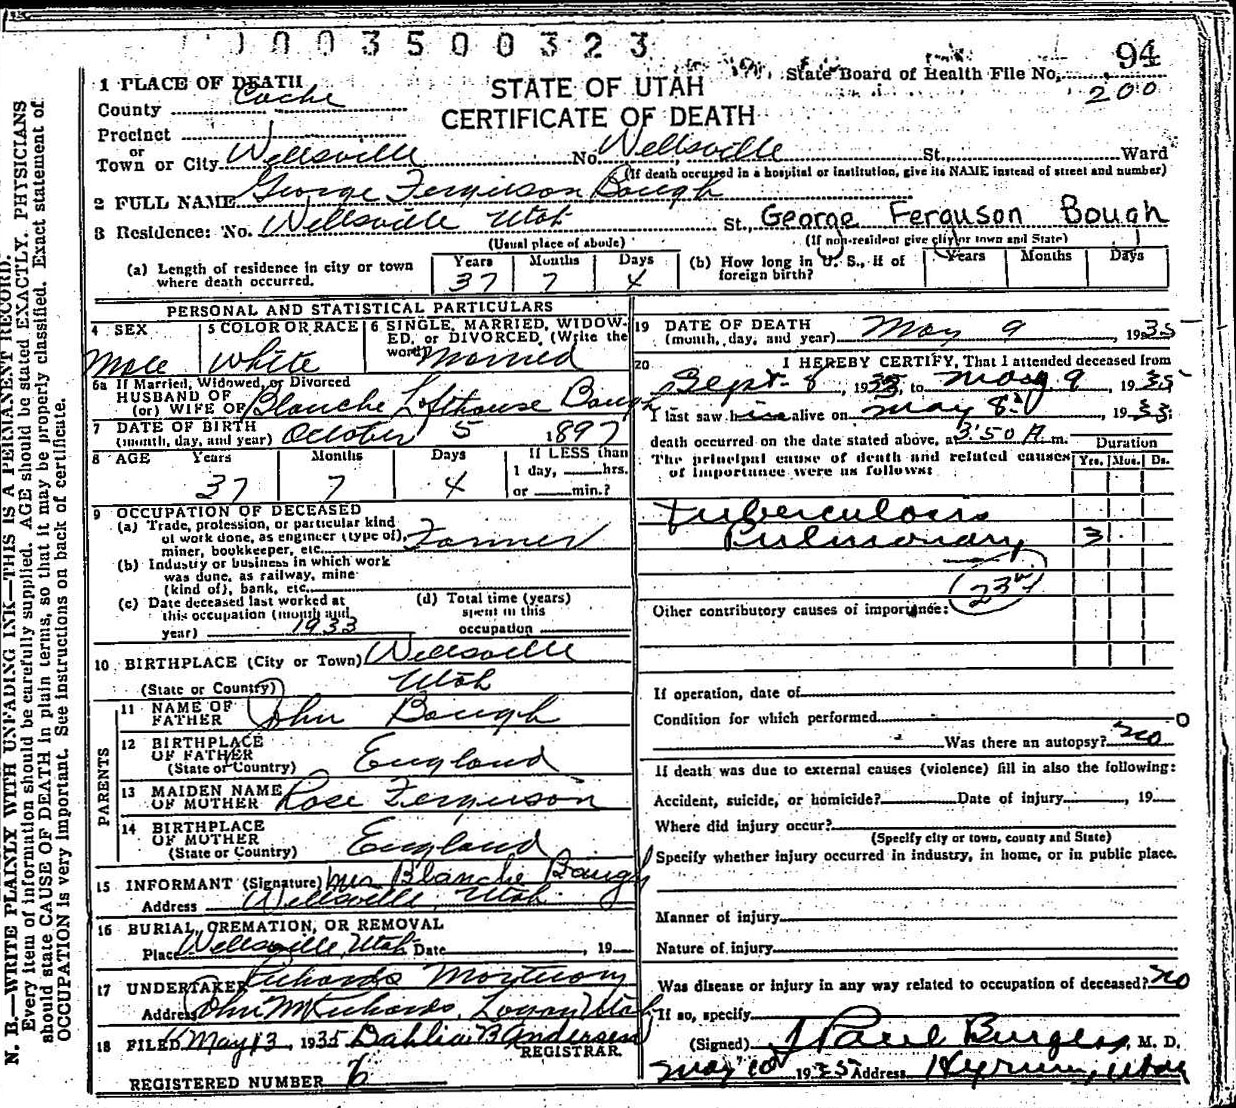 1003500323
94
State Board of Health File No. 200
1 PLACE OF DEATH
STATE OF UTAH
County Cache
CERTIFICATE OF DEATH
Precinct
or
Town or City Wellsville No. Wellsville St., Ward
(If death occurred in a hospital or institution, give its NAME instead of street and number)
2 FULL NAME George Ferguson Bough
3 Residence: No. Wellsville Utah St., George Ferguson Bough
(Usual place of abode) (If non-resident give city or town and State)
(a) Length of residence in city or town where death occurred. Years 37 Months 7 Days 4
(b) How long in U. S., if of foreign birth? Years Months Days
PERSONAL AND STATISTICAL PARTICULARS
4 SEX Male
5 COLOR OR RACE White
6 SINGLE, MARRIED, WIDOWED, or DIVORCED, (Write the word) Married
6a If Married, Widowed, or Divorced
HUSBAND OF
(or) WIFE OF Blanche Lofthouse Bough
7 DATE OF BIRTH
(month, day, and year) October 5 1897
8 AGE Years 37 Months 7 Days 4
If LESS than
1 day, hrs.
or min.?
9 OCCUPATION OF DECEASED
(a) Trade, profession, or particular kind
of work done, as engineer (type of),
miner, bookkeeper, etc. Farmer
(b) Industry or business in which work
was done, as railway, mine
(kind of), bank, etc.
(c) Date deceased last worked at
this occupation (month and
year) 1933
(d) Total time (years)
spent in this
occupation
10 BIRTHPLACE (City or Town) Wellsville
(State or Country) Utah
PARENTS
11 NAME OF
FATHER John Bough
12 BIRTHPLACE
OF FATHER
(State or Country) England
13 MAIDEN NAME
OF MOTHER Rose Ferguson
14 BIRTHPLACE
OF MOTHER
(State or Country) England
15 INFORMANT (Signature) Mrs Blanche Bough
Address Wellsville, Utah
16 BURIAL, CREMATION, OR REMOVAL
Place Wellsville, Utah Date , 19
17 UNDERTAKER Richards Mortuary
Address John M Richards, Logan Utah
18 FILED May 13 1935 Dahlia B Anderson
REGISTRAR.
REGISTERED NUMBER 6
19 DATE OF DEATH
(month, day, and year) May 9 , 1935
20 I HEREBY CERTIFY, That I attended deceased from
Sept. 8 , 1933, to May 9 , 1935
I last saw him alive on May 8 , 1935
death occurred on the date stated above, at 3:50 A m.
The principal cause of death and related causes
of importance were as follows:
Duration
Yrs. Mos. Ds.
Tuberculosis
Pulmonary 3
23
Other contributory causes of importance:
If operation, date of
Condition for which performed
Was there an autopsy? no
If death was due to external causes (violence) fill in also the following:
Accident, suicide, or homicide? Date of injury , 19
Where did injury occur?
(Specify city or town, county and State)
Specify whether injury occurred in industry, in home, or in public place.
Manner of injury
Nature of injury
Was disease or injury in any way related to occupation of deceased? no
If so, specify
(Signed) J Paul Burgess, M. D.
May 10 1935 Address Hyrum, Utah
N. B.—WRITE PLAINLY WITH UNFADING INK—THIS IS A PERMANENT RECORD.
Every item of information should be carefully supplied. AGE should be stated EXACTLY. PHYSICIANS
should state CAUSE OF DEATH in plain terms, so that it may be properly classified. Exact statement of
OCCUPATION is very important. See instructions on back of certificate.